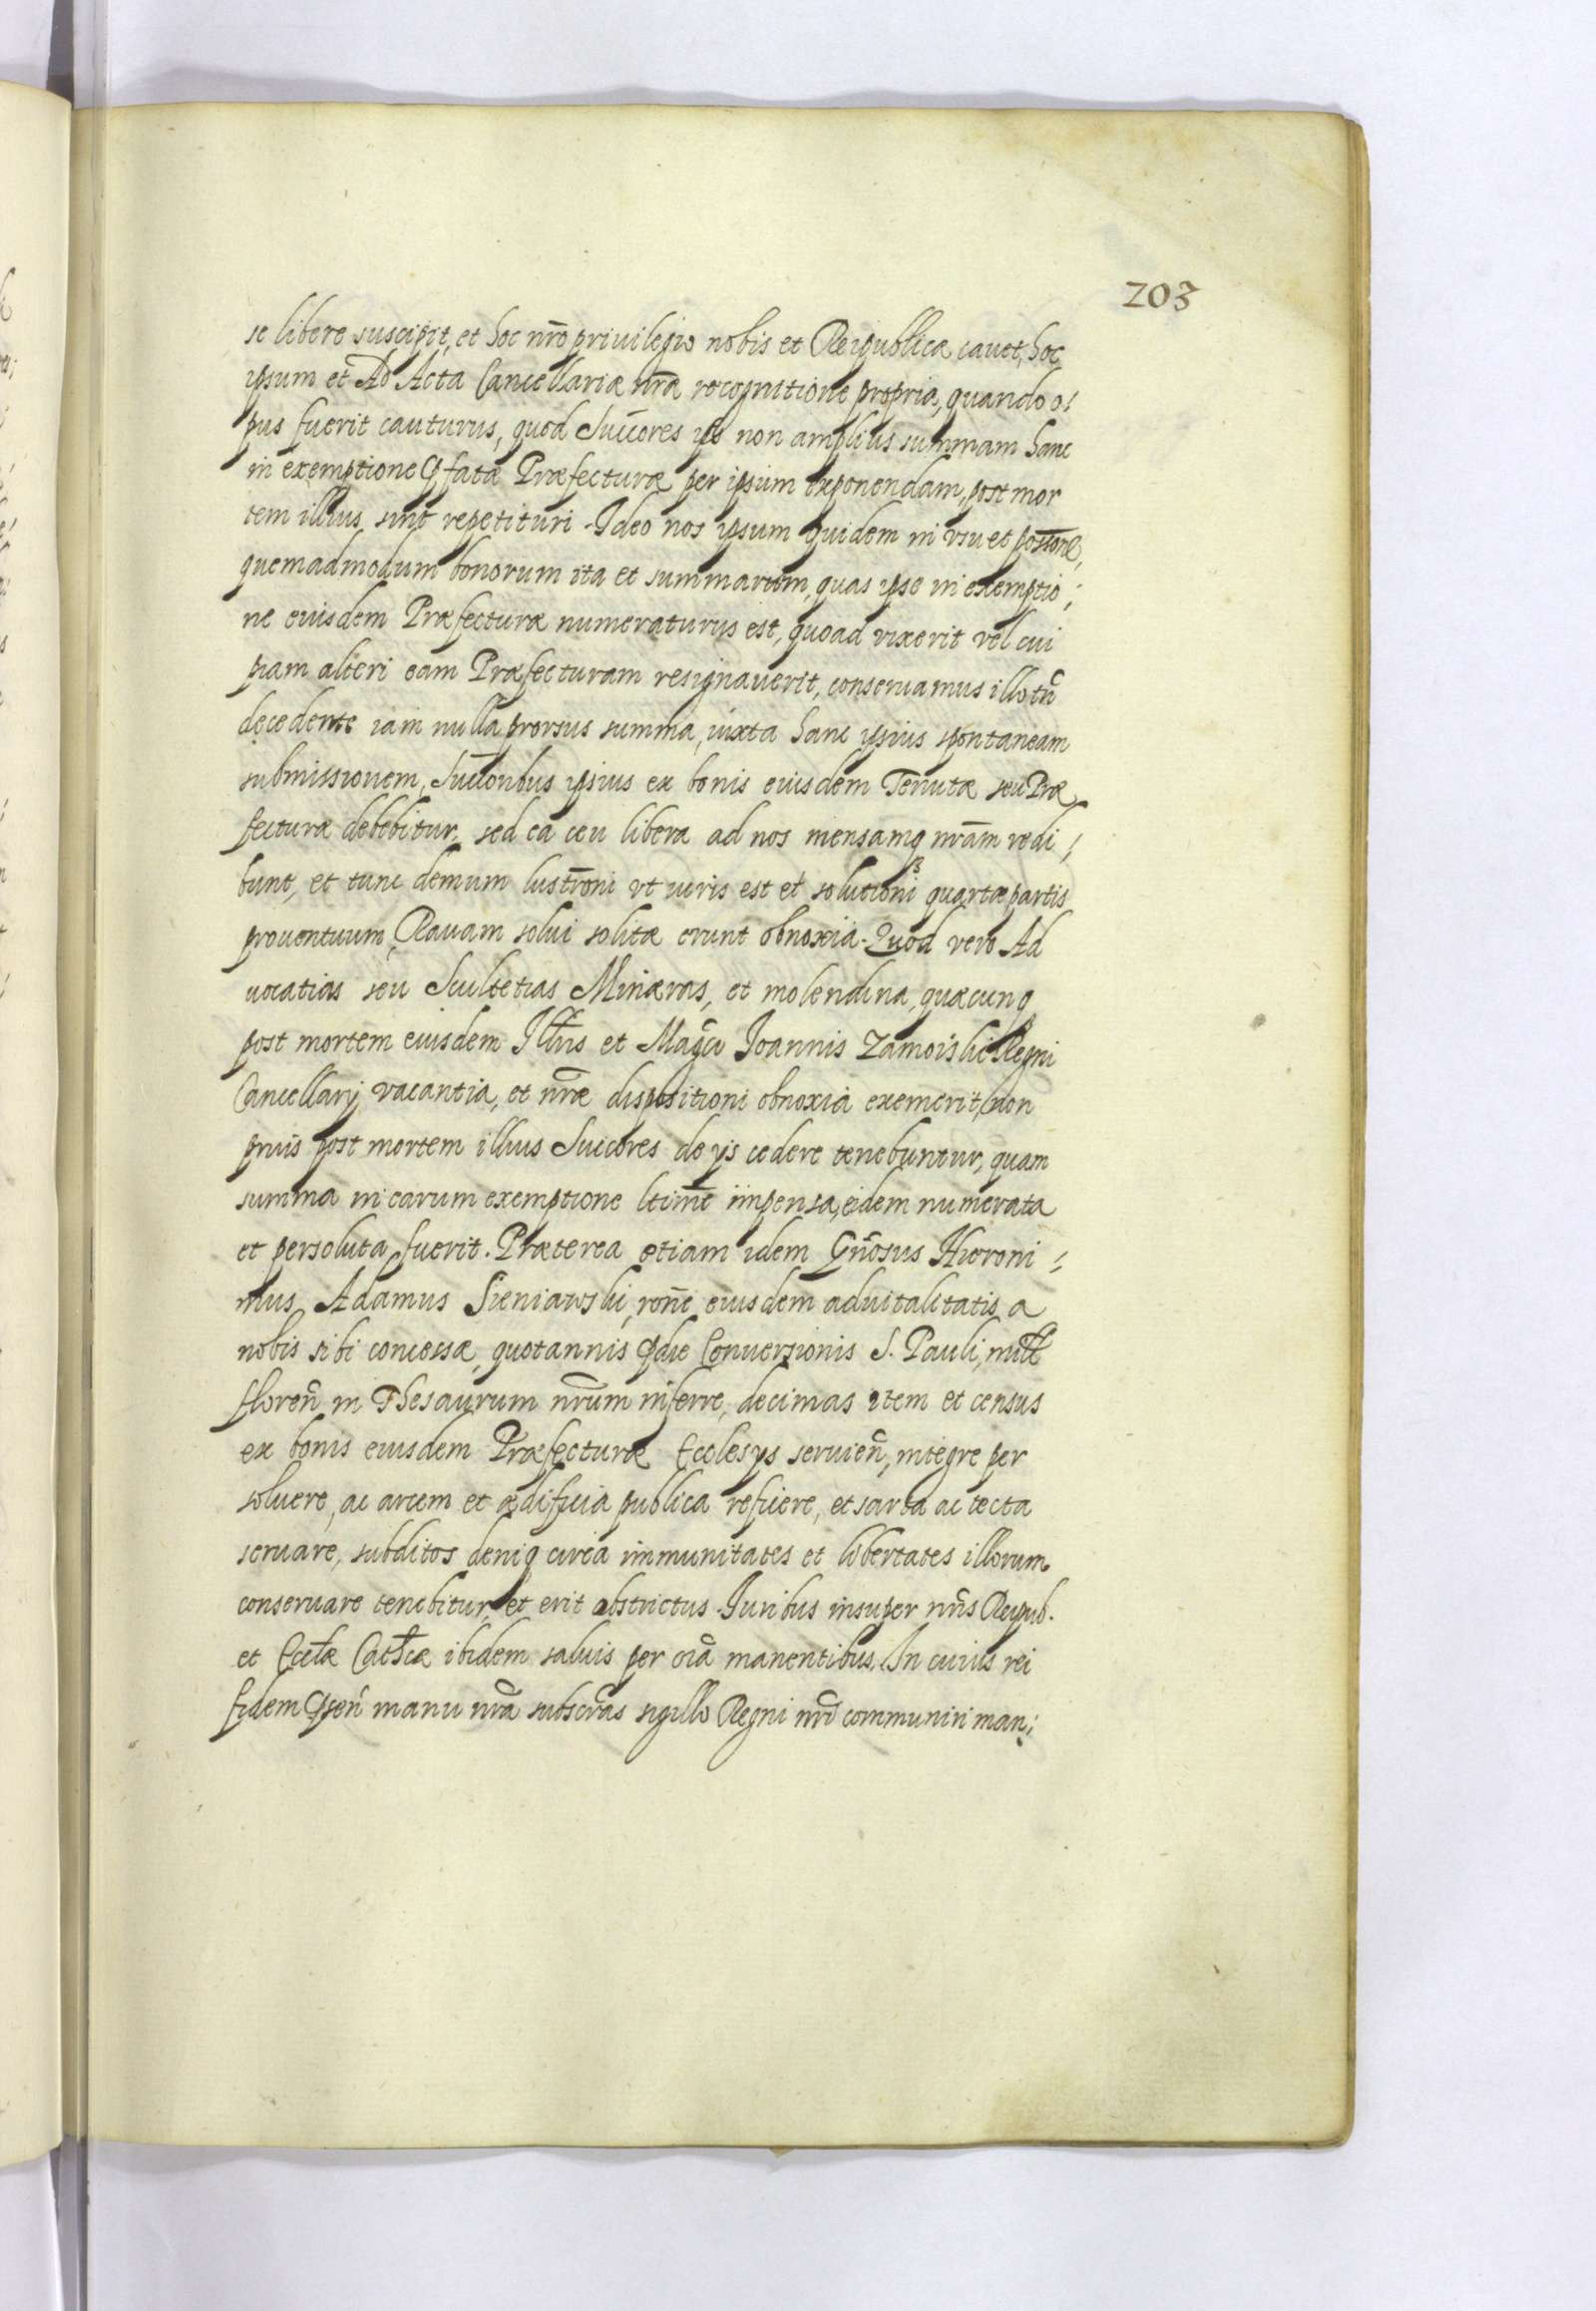 203
se libere suscipit, et hoc nr̄o priuilegio nobis et Reipublicæ cauet, hoc
ipsum et Ad Acta Cancellariæ nr̄a recognitione propria, quando o:
pus fuerit cauturus, quod Succores ipsi non amplius summam hanc
in exemptione Pfatæ Præfecturæ per ipsum exponendam, post mor
tem illius sint repetituri. Ideo nos ipsum quidem in vsu et possione,
quemadmodum bonorum ita et summarum, quas ipse in exemptio:
ne eiusdem Præfecturæ numeraturus est, quoad vixerit vel cui
piam alteri eam Præfecturam resignauerit, conseruamus illo tn̄
decedente iam nulla prorsus summa, iuxta hanc ipsius spontaneam
submissionem, Succoribus ipsius ex bonis eiusdem Tenutæ seu Præ
fecturæ debebitur, sed ea ceu libera ad nos mensamq nr̄am redi:
bunt, et tunc demum lustr̄oni vt iuris est et solutioni quartæ partis
prouentuum, Rauam solui solitæ erunt obnoxia. Quod vero Ad
uocatias seu Scultetias Minæras, et molendina, quæcunq
post mortem eiusdem Illris et Magci Joannis Zamoiski Regni
Cancellarij vacantia, et nr̄æ dispositioni obnoxia exemerit, non
prius post mortem illius Succores de ijs cedere tenebuntur, quam
summa in earum exemptione ltime impensa, eidem numerata
et persoluta fuerit. Præterea etiam idem Gn̄osus Hieroni:
mus Adamus Sieniawski, rone eiusdem aduitalitatis a
nobis sibi concessæ, quotannis P die Conuersionis S. Pauli, mille
floren̄ in Thesaurum nr̄um inferre, decimas item et census
ex bonis eiusdem Præfecturæ Ecclesijs seruien̄, integre per
soluere, ac arcem et ædificia publica reficere, et sarta ac tecta
seruare, subditos deniq circa immunitates et libertates illorum
conseruare tenebitur, et erit abstrictus. Iuribus insuper nr̄is Reipub.
et Eccłæ Cathcæ ibidem saluis per oi͠a manentibus. In cuius rei
fidem Psen̄ manu nr̄a subscr̄as sigillo Regni nr̄i communiri man: